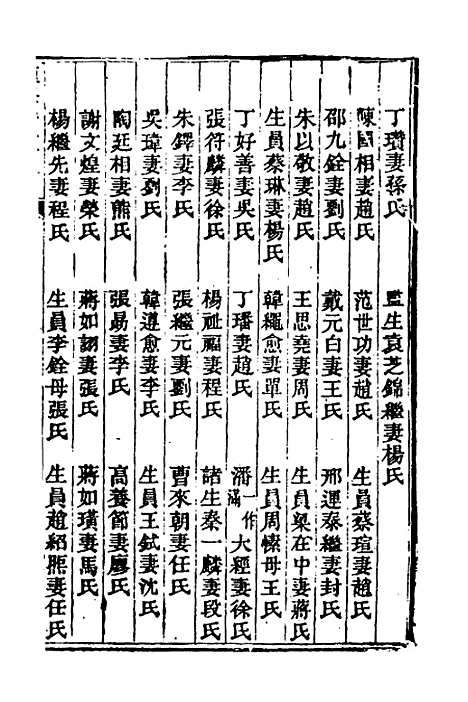 丁瓚妻孫氏　監生袁芝錦繼妻楊氏
陳國相妻趙氏　范世功妻趙氏　生員蔡瑄妻趙氏
邵九銓妻劉氏　戴元白妻王氏　邢運泰繼妻封氏
朱以敬妻趙氏　王思堯妻周氏　生員梁在中妻蔣氏
生員蔡琳妻楊氏　韓繩愈妻單氏　生員周愫母王氏
丁好善妻吳氏　丁璠妻趙氏　潘一作滿大經妻徐氏
張符麟妻徐氏　楊祉福妻程氏　諸生秦一麟妻段氏
朱鐸妻李氏　張繼元妻劉氏　曹來朝妻任氏
吳瑋妻劉氏　韓遵愈妻李氏　生員王鉽妻沈氏
陶廷相妻熊氏　張勗妻李氏　高養節妻廖氏
謝文煌妻榮氏　蔣如詡妻張氏　蔣如璜妻馬氏
楊繼先妻程氏　生員李銓母張氏　生員趙紹熙妻任氏